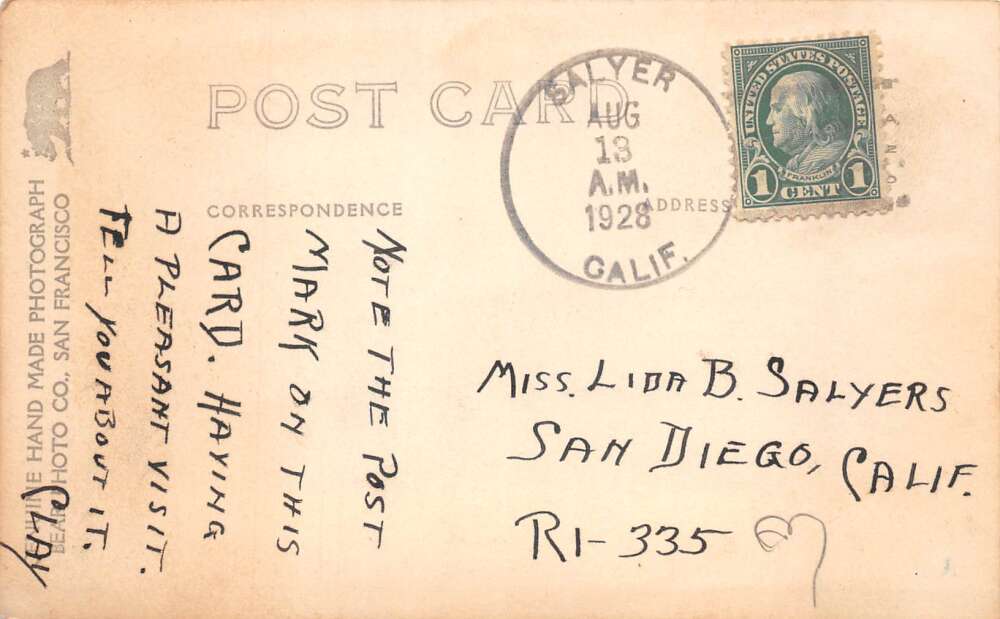 GENUINE HAND MADE PHOTOGRAPH
BEAR PHOTO CO., SAN FRANCISCO
POST CARD
CORRESPONDENCE
ADDRESS
SALYER
AUG
13
A.M.
1928
CALIF.
UNITED STATES POSTAGE
FRANKLIN
1 CENT 1
NOTE THE POST
MARK ON THIS
CARD. HAVING
A PLEASANT VISIT.
TELL YOU ABOUT IT.
CLAY
MISS. LIDA B. SALYERS
SAN DIEGO, CALIF.
R1-335